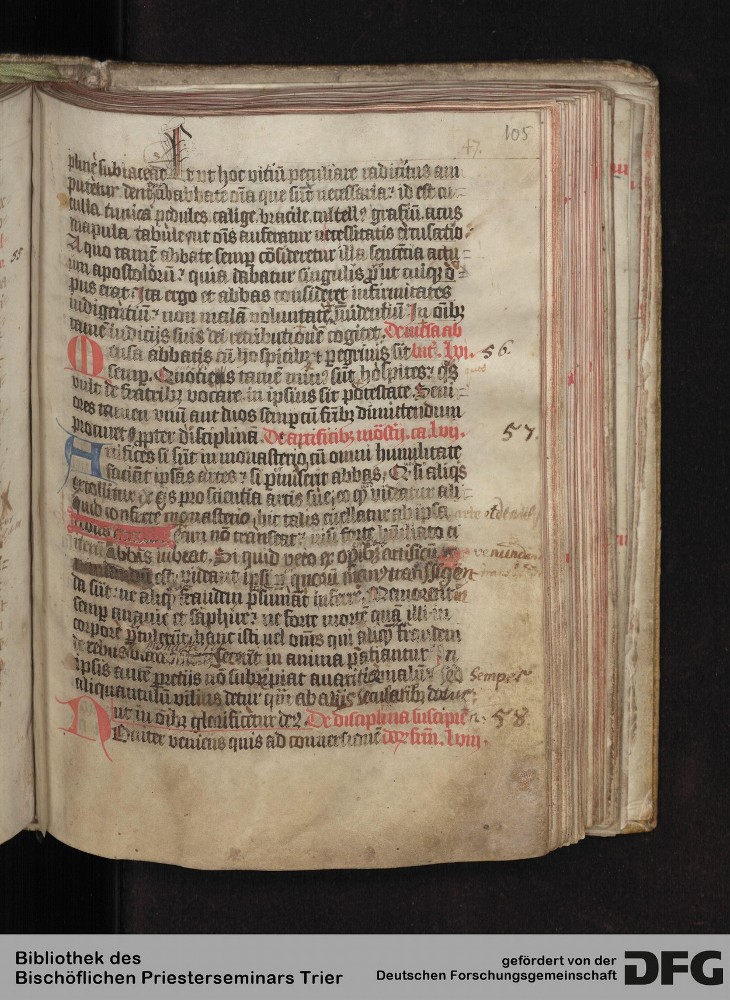 105
47.
pline subiaceat Et ut hoc vitiū peculiare radicitus am
putetur dent͛ ab abbate oīa que sūt necessaria: id est cu
culla tunica pedules calige bracile cultell9 grafiū acus
mapula tabule ut oīs auferatur necessitatis excusatio
A quo tamē abbate semp cōsideretur illa sentētia actu
um apostolorū: quia dabatur singulis put cuiq; o
pus erat: Ita ergo et abbas consideret infirmitates
indigentiū: non malā voluntatē inuidentiū In oīb;
tamē iudicijs suis dei retributionē cogitet. De mēsa ab
Mensa abbatis cū hospitib; et pegrinis sit bat͛. lvi. 56.
semp. Quotiens tamē min9 sūt hospites: q̄s
vult de fratrib; vocare in ipsius sit potestate. Seni
ores tamen vnū aut duos semp cū frīb; dimittendum
procuret ppter disciplinā. De artificib; mōstij. ca. lvij. 57.
Artifices si sūt in monasterio, cū omni humilitate
faciāt ipsas artes: si pmiserit abbas. Qr̄ si aliq̄s
extollitur de eis pro scientia artis sue, eo qr̄ videatur ali
quid conferre monasterio, hic talis euellatur ab ipsa
eam nō transeat: nisi forte hūiliato ei
iterū abbas iubeat. Si quid vero ex opib; artificū venundan
est, videant ipsi p quorū man9 transsigen
da sūt: ne aliq̄ fraudem psumāt inferre. Memorent͛
semp ananie et saphire: ne forte mortē quā illi in
corpore ptulerūt, hanc isti uel oms qui aliq̄ fraudem
de rebus fecerīt in anima patiantur In
ipsis autē pretijs nō subripiat auaritie malū: sed semper
aliquantulū vilius detur q̄m ab alijs secularib; datur
Ut in oīb; glorificetur de9. De disciplina suscipien 58.
Nouiter veniens quis ad conuersionē dor̄ frm̄. lviij.
Bibliothek des
Bischöflichen Priesterseminars Trier
gefördert von der
Deutschen Forschungsgemeinschaft
DFG